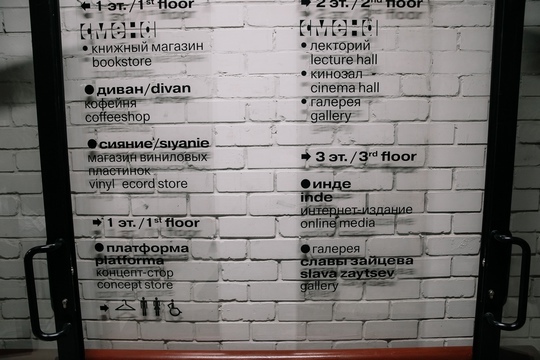 1 эт./1st floor
смена
книжный магазин
bookstore
диван/divan
кофейня
coffeeshop
сияние/siyanie
магазин виниловых
пластинок
vinyl ecord store
1 эт./1st floor
платформа
platforma
концепт-стор
concept store
2 эт./2nd floor
смена
лекторий
lecture hall
кинозал
cinema hall
галерея
gallery
3 эт./3rd floor
инде
inde
интернет-издание
online media
галерея
славы зайцева
slava zaytsev
gallery